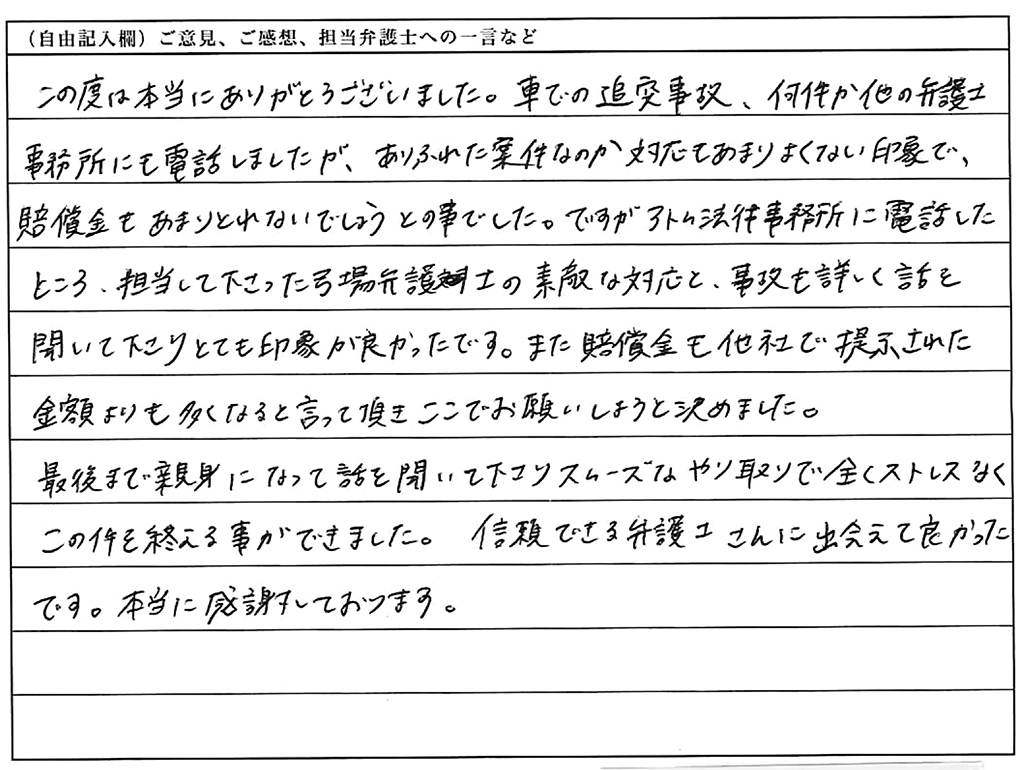 （自由記入欄）ご意見、ご感想、担当弁護士への一言など
この度は本当にありがとうございました。車での追突事故、何件か他の弁護士
事務所にも電話しましたが、ありふれた案件なのか対応もあまりよくない印象で、
賠償金もあまりとれないでしょうとの事でした。ですがアトム法律事務所に電話した
ところ、担当して下さった弓場弁護士の素敵な対応と、事故も詳しく話を
聞いて下さりとても印象が良かったです。また賠償金も他社で提示された
金額よりも多くなると言って頂きここでお願いしようと決めました。
最後まで親身になって話を聞いて下さりスムーズなやり取りで全くストレスなく
この件を終える事ができました。 信頼できる弁護士さんに出会えて良かった
です。本当に感謝しております。